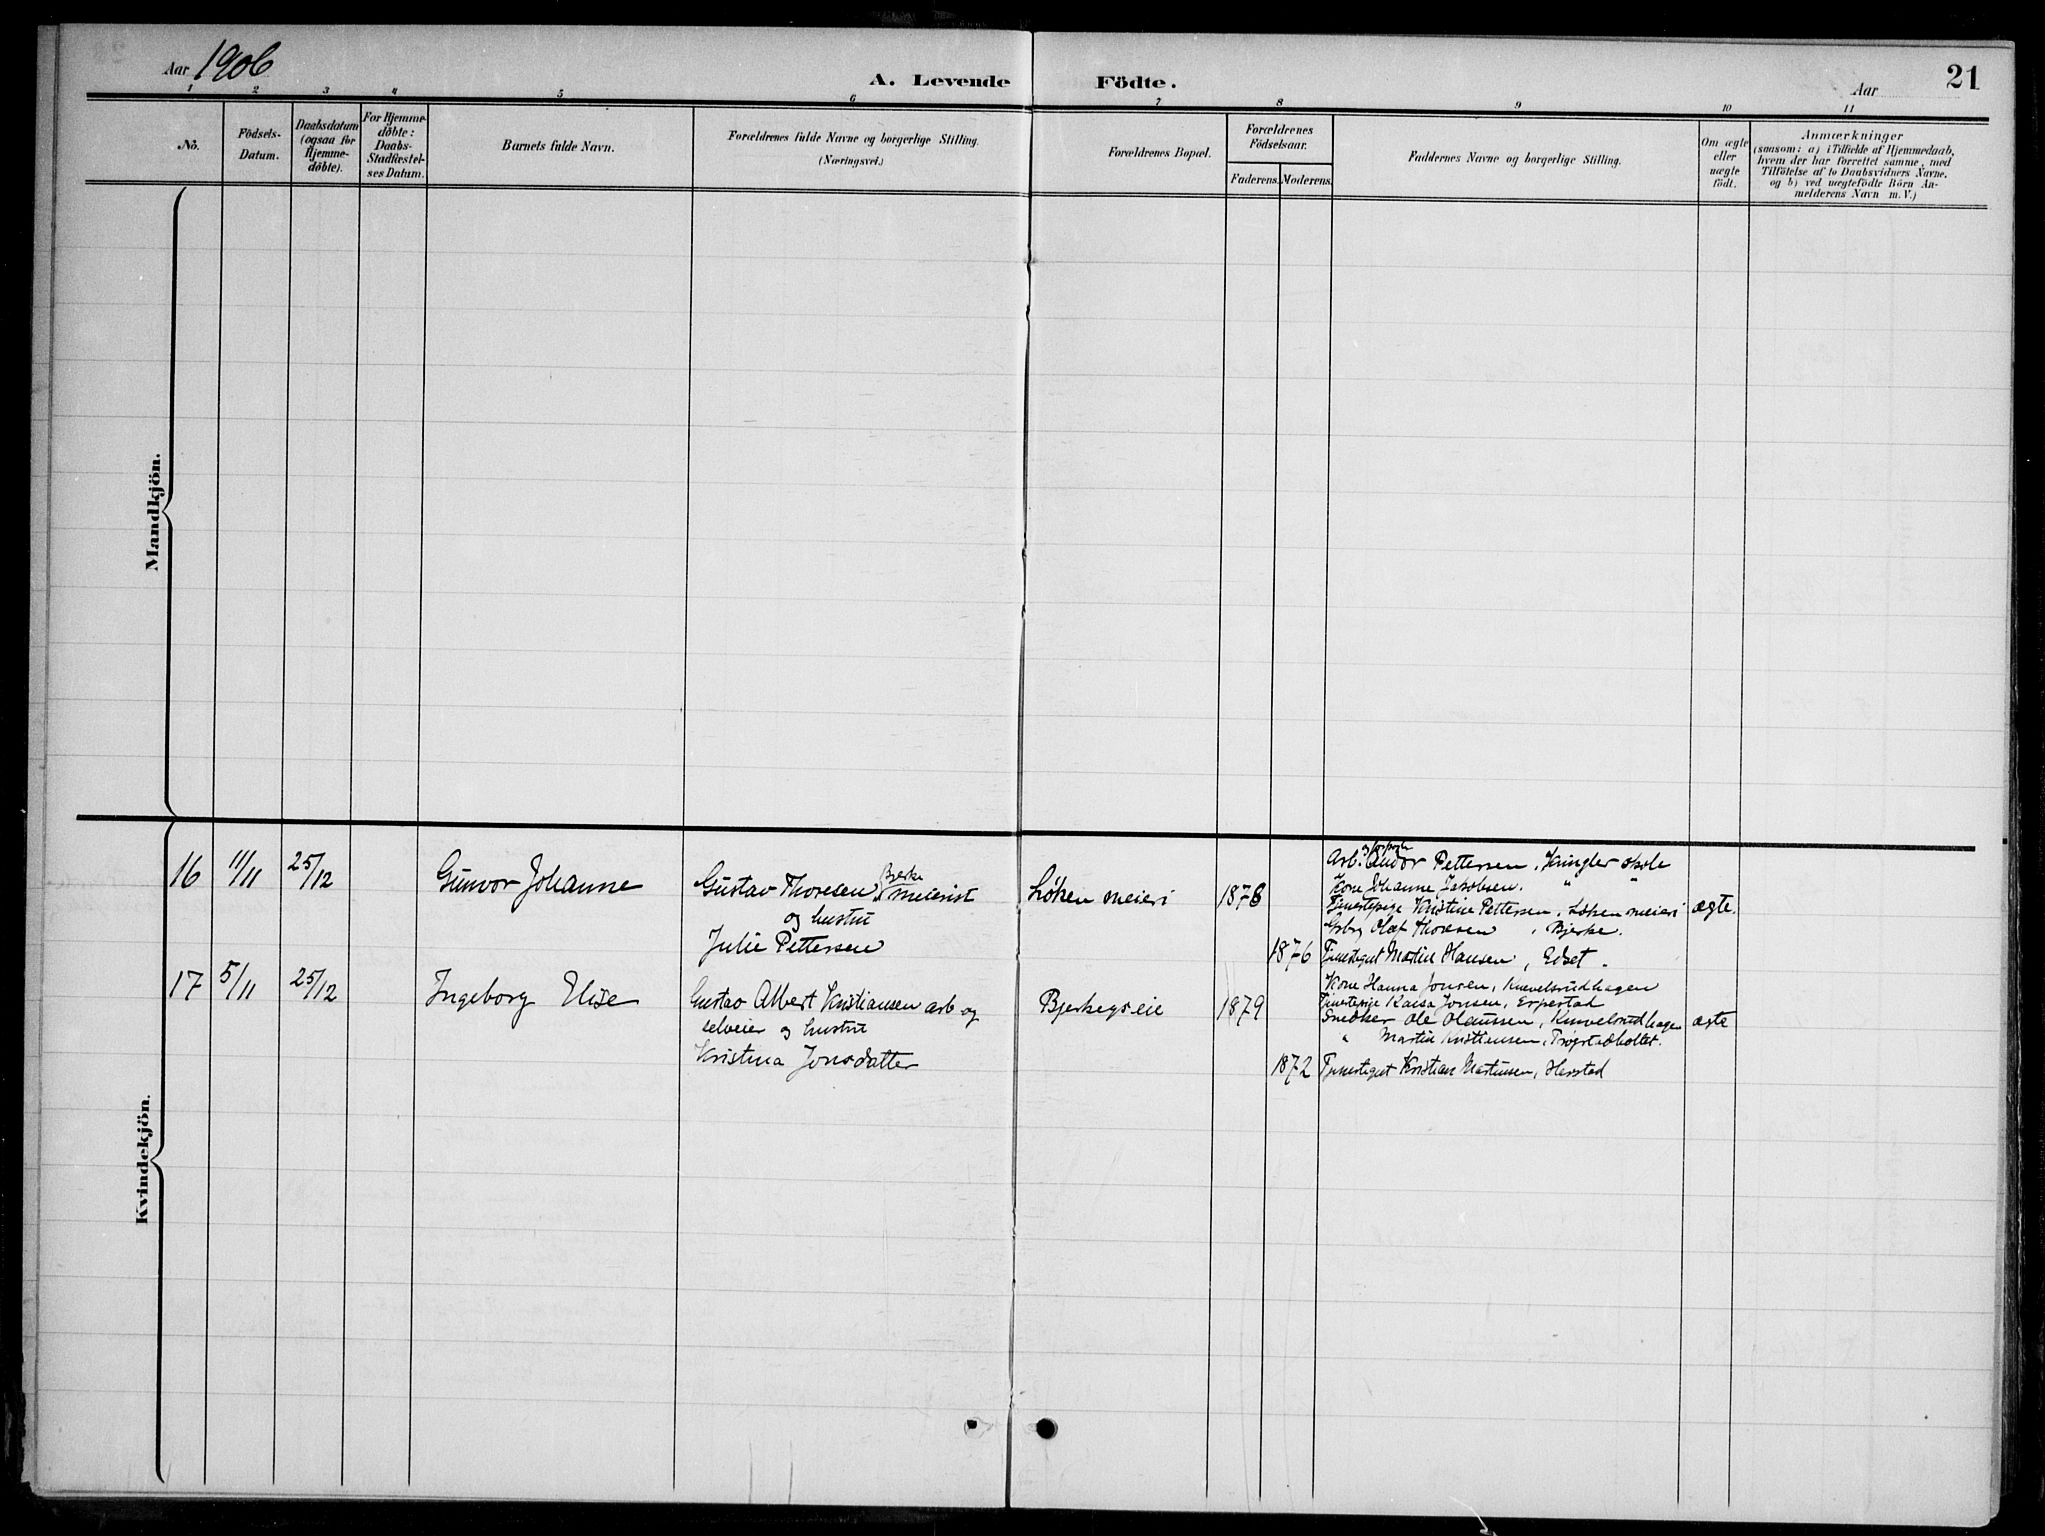 Aar 1906
A. Levende Födte.
Aar
21
1 2 3 4 5 6 7 8 9 10 11
No.
Födsels-
Datum.
Daabsdatum
(ogsaa for
Hjemme-
døbte).
For Hjemme-
døbte:
Daabs-
Stadfæstel-
ses Datum.
Barnets fulde Navn.
Forældrenes fulde Navne og borgerlige Stilling.
(Næringsvei.)
Forældrenes Bopæl.
Forældrenes
Fødselsaar.
Faderens. Moderens.
Faddernes Navne og borgerlige Stilling.
Om ægte
eller
uægte
født.
Anmærkninger
(saasom: a) i Tilfælde af Hjemmedaab,
hvem der har forrettet samme, med
Tilføielse af to Daabsvidners Navne.
og b) ved uægtefødte Börn An-
melderens Navn m.V.)
Mandkjön.
Kvindekjön.
16 11/11 25/12 Gunvor Johanne
Gustav Thoresen Bjerke meierist
og hustru
Julie Pettersen
Løken meieri
1878
1876
Arb. Andor Pettersen, Kringler skole
Kone Johanne Jakobsen. " "
Tjenestepige Kristine Pettersen, Løken meieri
Olaf Thoresen, Bjerke.
Tjenestegut Martin Hansen, Edset.
ægte.
17 5/11 25/12 Ingeborg Elise
Gustav Albert Kristiansen arb og
selveier og hustru
Kristina Jonsdatter
Bjerkegseie
1879
1872
Kone Hanna Jonsen, Knevelsrudhagen
Tjenestepige Kaisa Jonsen, Erpestad
Snedker Ole Olaussen, Knevelsrudhagen
" Martin Kristiansen, Trogstadholtet.
Tjenestegut Kristian Martinsen, Herstad
ægte